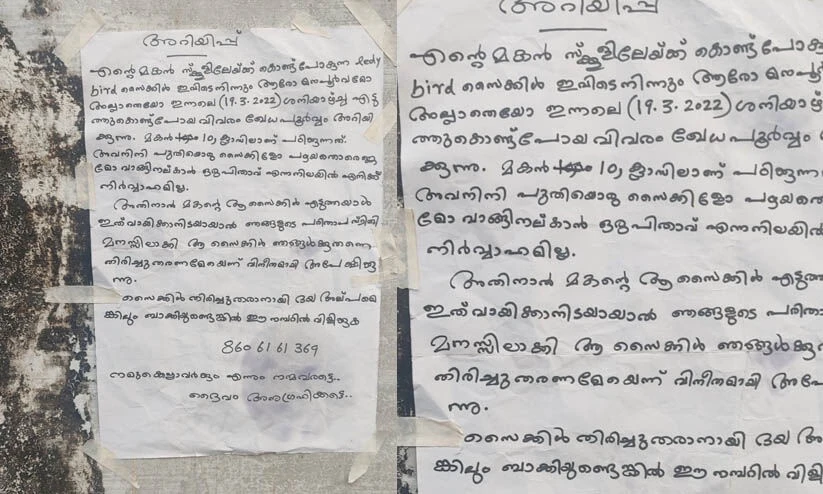 അറിയിപ്പ്
എന്റെ മകൻ സ്ക്കൂളിലേയ്ക്ക് കൊണ്ട്പോകുന്ന Ledy
bird സൈക്കിൾ ഇവിടെനിന്നും ആരോ മനപൂർവമോ
അല്ലാതെയോ ഇന്നലെ (19.3.2022) ശനിയാഴ്ച്ച എടു
ത്തുകൊണ്ട്പോയ വിവരം ഖേധപൂർവ്വം അറിയി
ക്കുന്നു. മകൻ 10, ക്ലാസിലാണ് പഠിക്കുന്നത്.
അവനിനി പുതിയൊരു സൈക്കിളോ പഴയതൊരെണ്ണ
മോ വാങ്ങിനല്കാൻ ഒരുപിതാവ് എന്നനിലയിൽ എനിക്ക്
നിർവ്വാഹമില്ല.
അതിനാൽ മകന്റെ ആ സൈക്കിൾ എടുത്തയാൾ
ഇത് വായിക്കാനിടയായാൽ ഞങ്ങളുടെ പരിതാപസ്ഥിതി
മനസ്സിലാക്കി ആ സൈക്കിൾ ഞങ്ങൾക്കുതന്നെ
തിരിച്ചുതരണമേയെന്ന് വിനീതമായി അപേക്ഷിക്കു
ന്നു.
സൈക്കിൾ തിരിച്ചുതരാനായി ദയ അല്പമെ
ങ്കിലും ബാക്കിയുണ്ടെങ്കിൽ ഈ നമ്പറിൽ വിളിക്കുക
860 61 61 369
നമുക്കെല്ലാവർക്കും എന്നും നന്മവരട്ടെ..
ദൈവം അനുഗ്രഹിക്കട്ടെ..
അറിയിപ്പ്
എന്റെ മകൻ സ്ക്കൂളിലേയ്ക്ക് കൊണ്ട്പോകു
bird സൈക്കിൾ ഇവിടെനിന്നും ആരോ മനപൂർ
അല്ലാതെയോ ഇന്നലെ (19.3.2022) ശനിയാഴ്
ത്തുകൊണ്ട്പോയ വിവരം ഖേധപൂർവ്വം
ക്കുന്നു. മകൻ 10, ക്ലാസിലാണ് പഠിക്കുന്ന
അവനിനി പുതിയൊരു സൈക്കിളോ പഴയതൊ
മോ വാങ്ങിനല്കാൻ ഒരുപിതാവ് എന്നനിലയിൽ
നിർവ്വാഹമില്ല.
അതിനാൽ മകന്റെ ആ സൈക്കിൾ എടുത്ത
ഇത് വായിക്കാനിടയായാൽ ഞങ്ങളുടെ പരിതാ
മനസ്സിലാക്കി ആ സൈക്കിൾ ഞങ്ങൾക്കു
തിരിച്ചുതരണമേയെന്ന് വിനീതമായി അപേ
ന്നു.
സൈക്കിൾ തിരിച്ചുതരാനായി ദയ അ
ങ്കിലും ബാക്കിയുണ്ടെങ്കിൽ ഈ നമ്പറിൽ വിളി